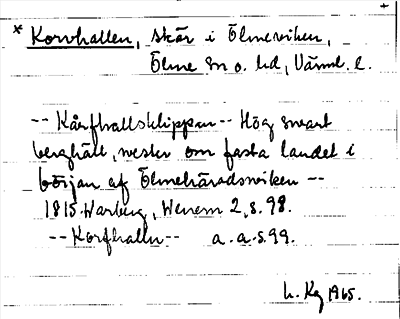 * Korvhallen, skär i Ölmeviken,
Ölme sn o. hd, Värml. l.
-- Kårfhallsklippan -- Hög svart
berghäll, wester om fasta landet i
början af Ölmehäradsviken --
1815 Warberg, Wenern 2, s. 98.
-- Korfhalln -- a. a. s. 99.
L. Kg 1965.